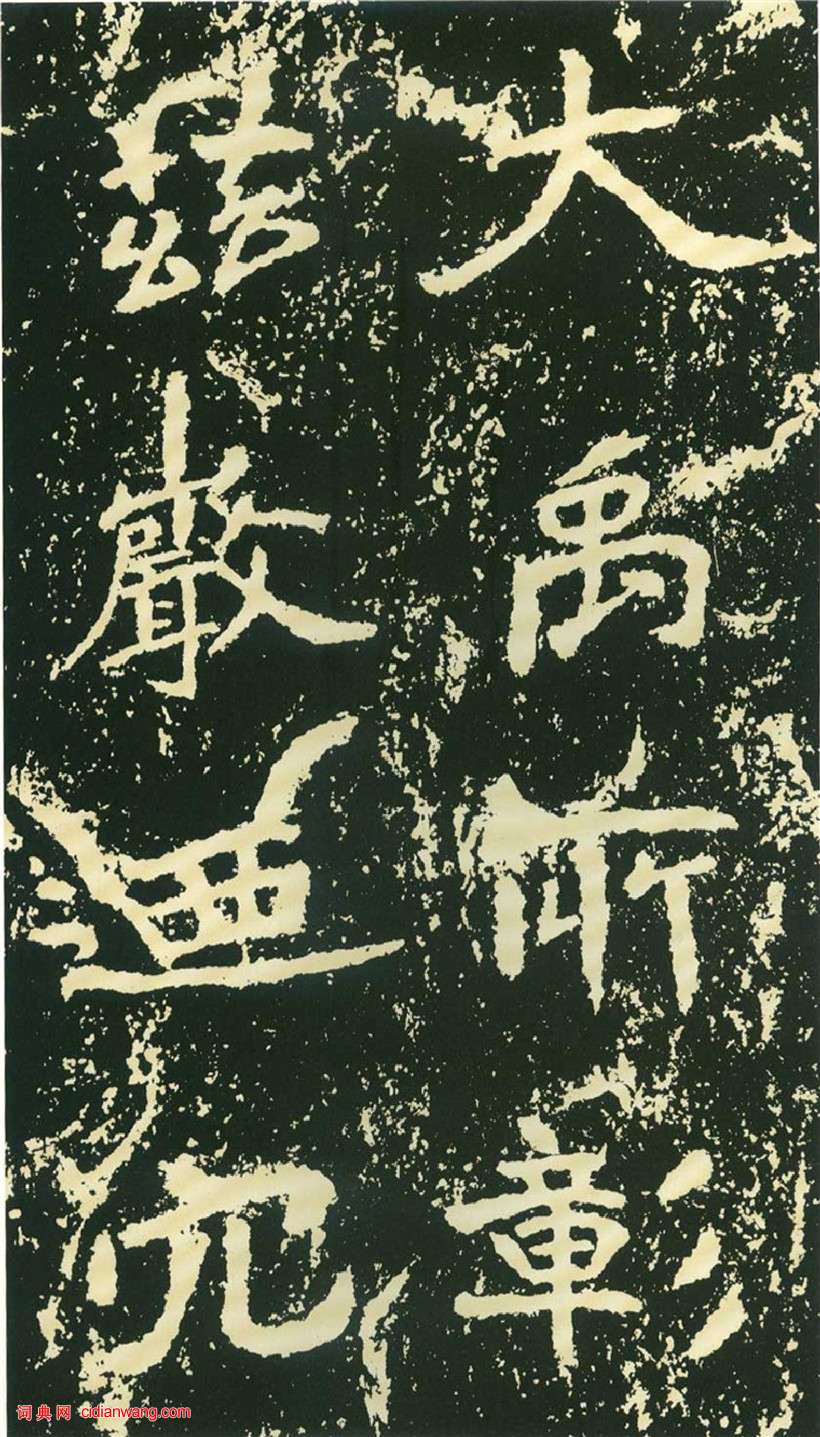 大禹所彰
茲巖迺穴
词典网 cidianwang.com